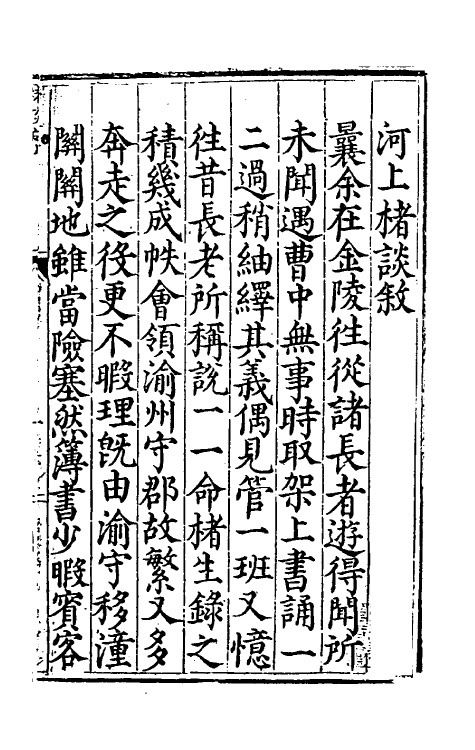 河上楮談敘
曩余在金陵徃從諸長者遊得聞所
未聞遇曹中無事時取架上書誦一
二過稍紬繹其義偶見管一班又憶
徃昔長老所稱說一一命楮生錄之
積幾成帙會領渝州守郡故繁又多
奔走之役更不暇理旣由渝守移潼
關關地雖當險塞然簿書少暇賓客